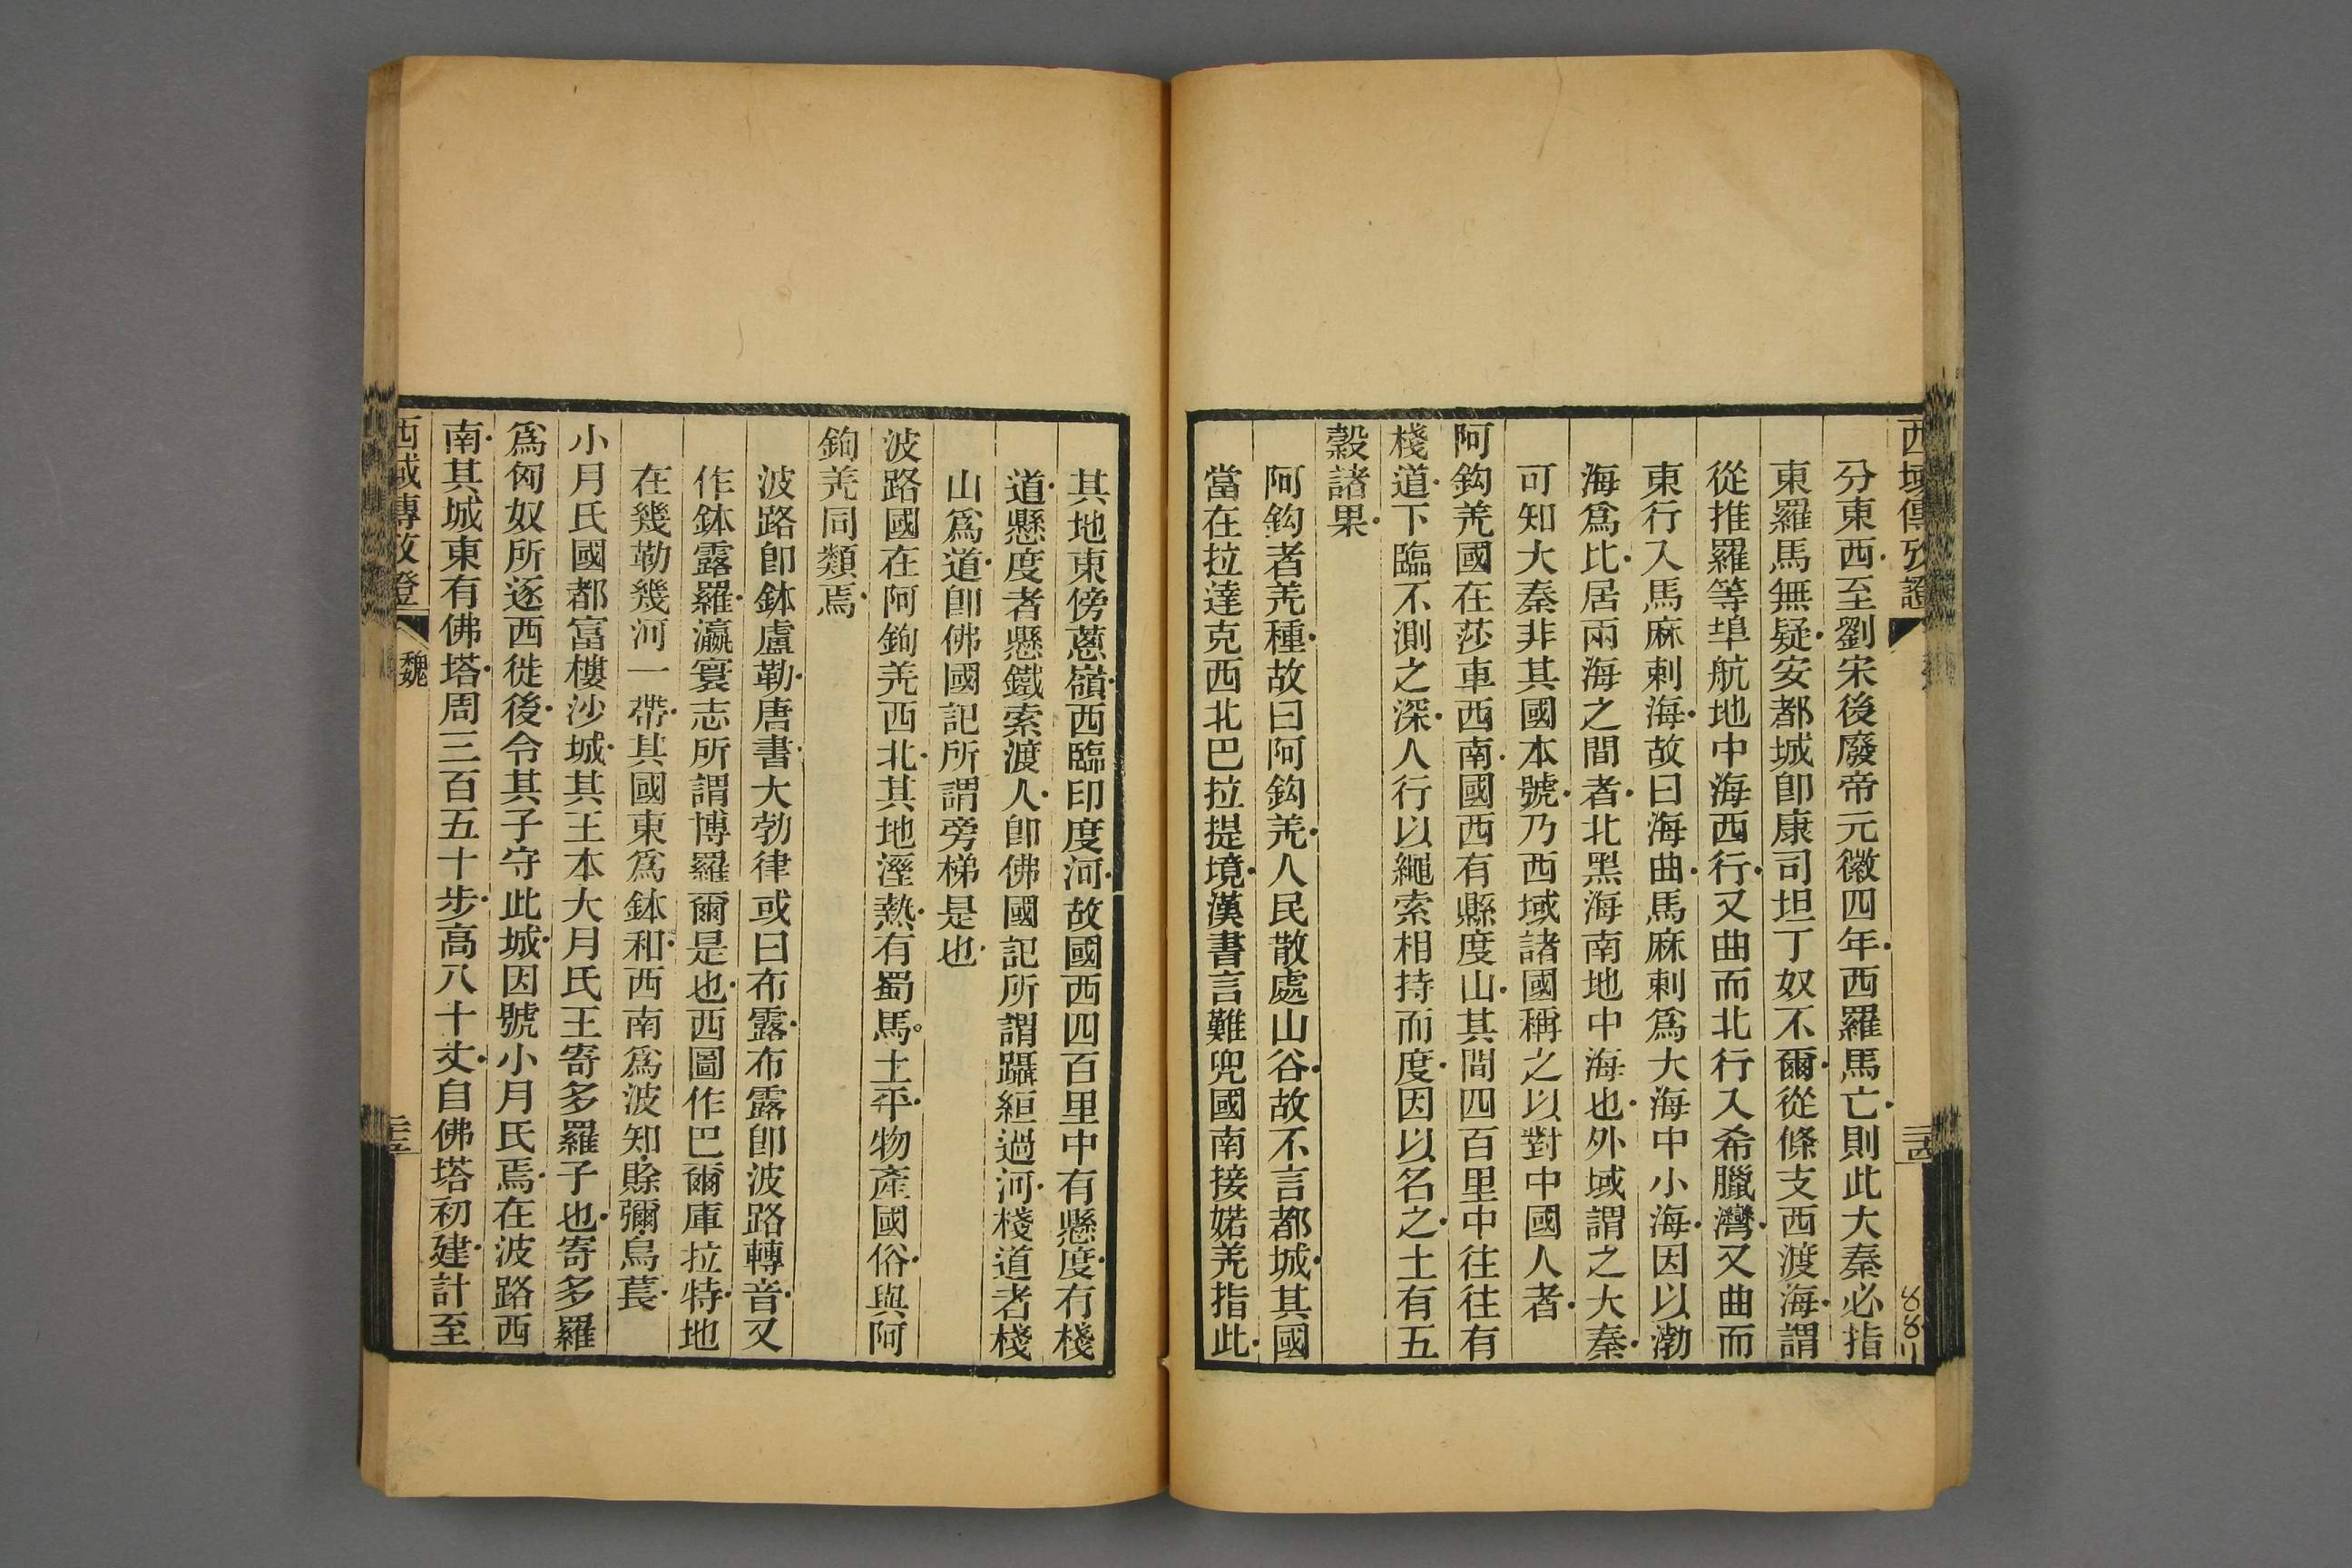 西域傳攷證
三十四
分東西至劉宋後廢帝元徽四年西羅馬亡則此大秦必指
東羅馬無疑安都城卽康司坦丁奴不爾從條支西渡海謂
從推羅等埠航地中海西行又曲而北行入希臘灣又曲而
東行入馬麻剌海故曰海曲馬麻剌爲大海中小海因以渤
海爲比居兩海之間者北黑海南地中海也外域謂之大秦
可知大秦非其國本號乃西域諸國稱之以對中國人者
阿鈎羌國在莎車西南國西有縣度山其間四百里中往往有
棧道下臨不測之深人行以繩索相持而度因以名之土有五
穀諸果
阿鈎者羌種故曰阿鈎羌人民散處山谷故不言都城其國
當在拉達克西北巴拉提境漢書言難兜國南接婼羌指此
其地東傍蔥嶺西臨印度河故國西四百里中有懸度有棧
道懸度者懸鐵索渡人卽佛國記所謂躡絙過河棧道者棧
山爲道卽佛國記所謂旁梯是也
波路國在阿鉤羌西北其地溼熱有蜀馬土平物產國俗與阿
鉤羌同類焉
波路卽鉢盧勒唐書大勃律或曰布露布露卽波路轉音又
作鉢露羅瀛寰志所謂博羅爾是也西圖作巴爾庫拉特地
在幾勒幾河一帶其國東爲鉢和西南爲波知賒彌烏萇
小月氏國都富樓沙城其王本大月氏王寄多羅子也寄多羅
爲匈奴所逐西徙後令其子守此城因號小月氏焉在波路西
南其城東有佛塔周三百五十步高八十丈自佛塔初建計至
西域傳攷證
魏
三十五